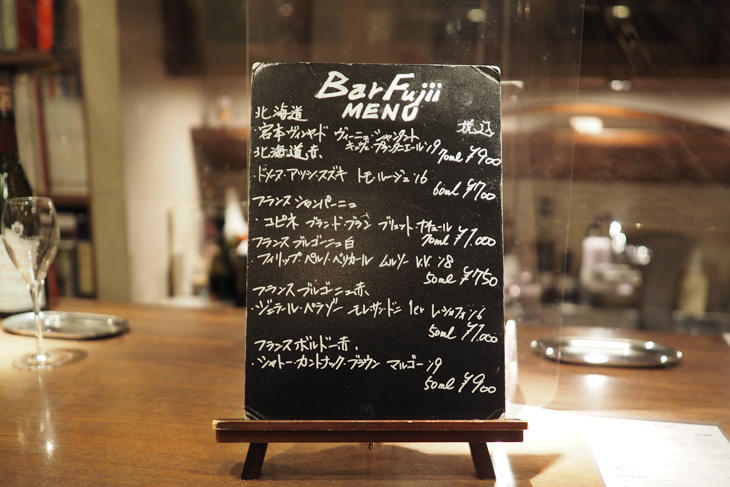 Bar Fujii
MENU
北海道 税込
・宮本ヴィンヤード ヴィーニュ・シャンタント
キュヴェ・プランタニエール '19 70ml ¥900
北海道赤
・ドメーヌ・アツシ・スズキ トモ・ルージュ '16
60ml ¥700
フランス シャンパーニュ
・コピネ ブラン・ド・ブラン ブリュット・ナチュール
70ml ¥1.000
フランス ブルゴーニュ白
・フィリップ・ペルノ・ベリカール ムルソー V.V. '18
50ml ¥750
フランス ブルゴーニュ赤
・ジェラール・ペラゾー モレ・サン・ドニ 1er '16
50ml ¥1.000
フランス ボルドー赤
・シャトー・カントナック・ブラウン マルゴー '19
50ml ¥900